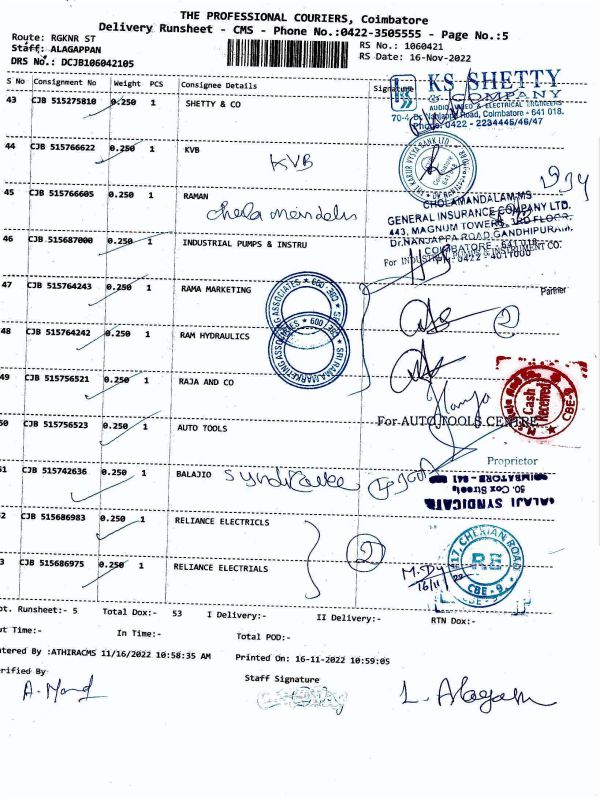 THE PROFESSIONAL COURIERS, Coimbatore
Delivery Runsheet - CMS - Phone No.:0422-3505555 - Page No.:5
Route: RGKNR ST
RS No.: 1060421
Staff: ALAGAPPAN
RS Date: 16-Nov-2022
DRS No.: DCJB106042105
S No Consignment No Weight PCS Consignee Details Signature
KS SHETTY
& COMPANY
AUDIO VIDEO & ELECTRICAL ENGINEERS
70-4, Dr. Nanjappa Road, Coimbatore - 641 018.
Phone: 0422 - 2234445/46/47
43 CJB 515275810 0.250 1 SHETTY & CO
44 CJB 515766622 0.250 1 KVB
KVB
45 CJB 515766605 0.250 1 RAMAN
CHOLAMANDALAM MS
GENERAL INSURANCE COMPANY LTD.
443, MAGNUM TOWERS, IRD FLOOR,
Dr.NANJAPPA ROAD, GANDHIPURAM,
COIMBATORE - 641 018
PH: 0422 - 4017000
46 CJB 515687000 0.250 1 INDUSTRIAL PUMPS & INSTRU
For INDUSTRIAL PUMPS & INSTRUMENT CO.
Partner
47 CJB 515764243 0.250 1 RAMA MARKETING
SRI RAMA MARKETING ASSOCIATES
48 CJB 515764242 0.250 1 RAM HYDRAULICS
2
49 CJB 515756521 0.250 1 RAJA AND CO
Cash
Received
50 CJB 515756523 0.250 1 AUTO TOOLS
For AUTO TOOLS CENTRE
Proprietor
51 CJB 515742636 0.250 1 BALAJIO
Syndicate
BALAJI SYNDICATE
50, Cox Street,
COIMBATORE - 641
52 CJB 515686983 0.250 1 RELIANCE ELECTRICLS
2
17, CHERIAN ROAD
RE
CBE - 9
53 CJB 515686975 0.250 1 RELIANCE ELECTRIALS
16/11/22
pt. Runsheet:- 5 Total Dox:- 53 I Delivery:- II Delivery:- RTN Dox:-
ut Time:- In Time:- Total POD:-
ntered By :ATHIRACMS 11/16/2022 10:58:35 AM Printed On: 16-11-2022 10:59:05
erified By Staff Signature
L. Alagappan